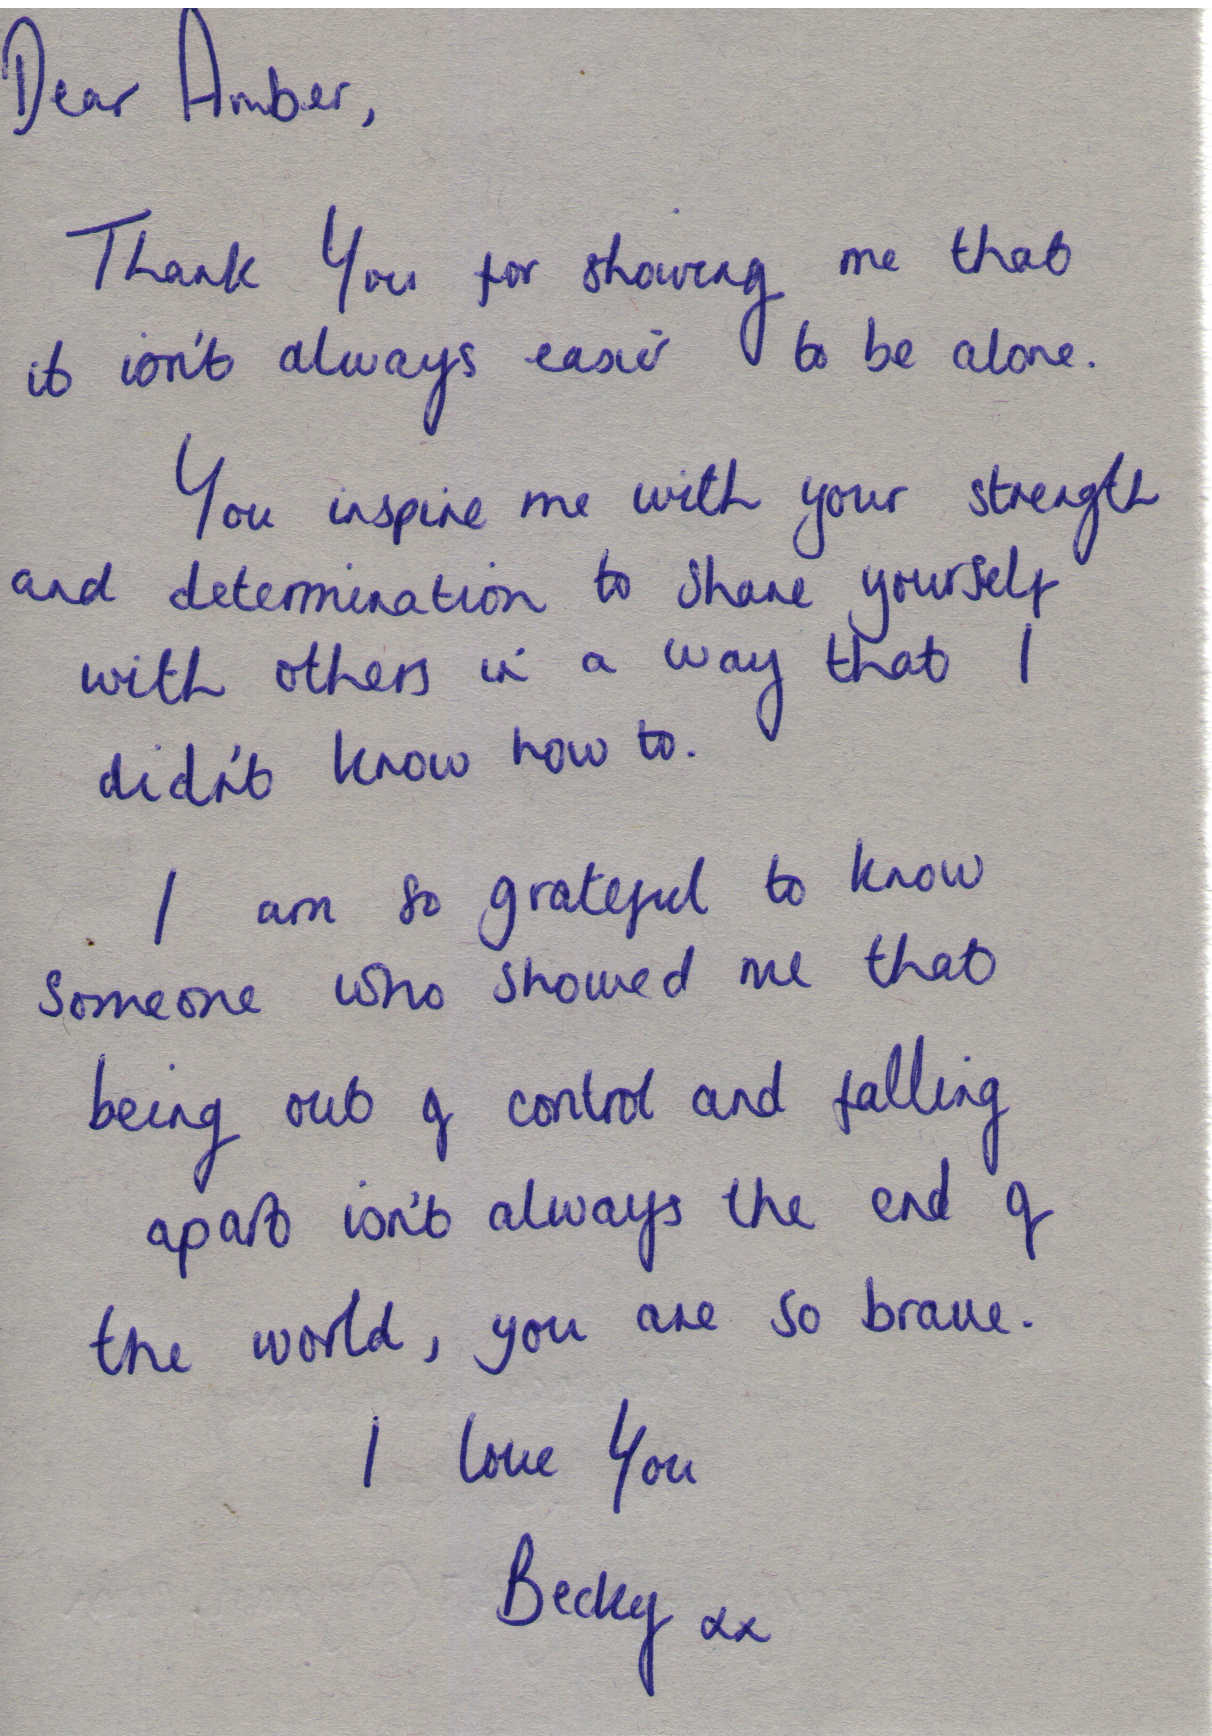 Dear Amber,
Thank You for showing me that
it isn't always easier to be alone.
You inspire me with your strength
and determination to share yourself
with others in a way that I
didn't know how to.
I am so grateful to know
someone who showed me that
being out of control and falling
apart isn't always the end of
the world, you are so brave.
I love You
Becky xx